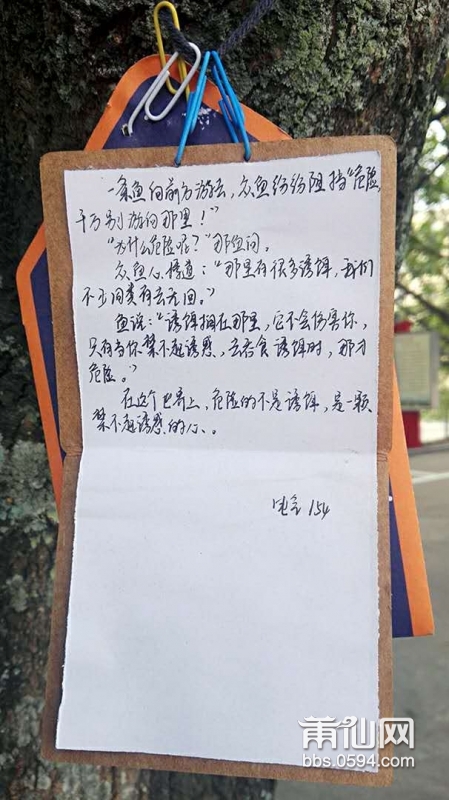 一条鱼向前方游去,众鱼纷纷阻挡"危险,
千万别游向那里!"
"为什么危险呢?"那鱼问。
众鱼心道:"那里有很多诱饵,我们
不少同类有去无回。"
鱼说:"诱饵搁在那里,它不会伤害你,
只有当你禁不起诱惑,去吞食诱饵时,那才
危险。"
在这个世界上,危险的不是诱饵,是一颗
禁不起诱惑的心。
154
莆仙网
bbs.0594.com